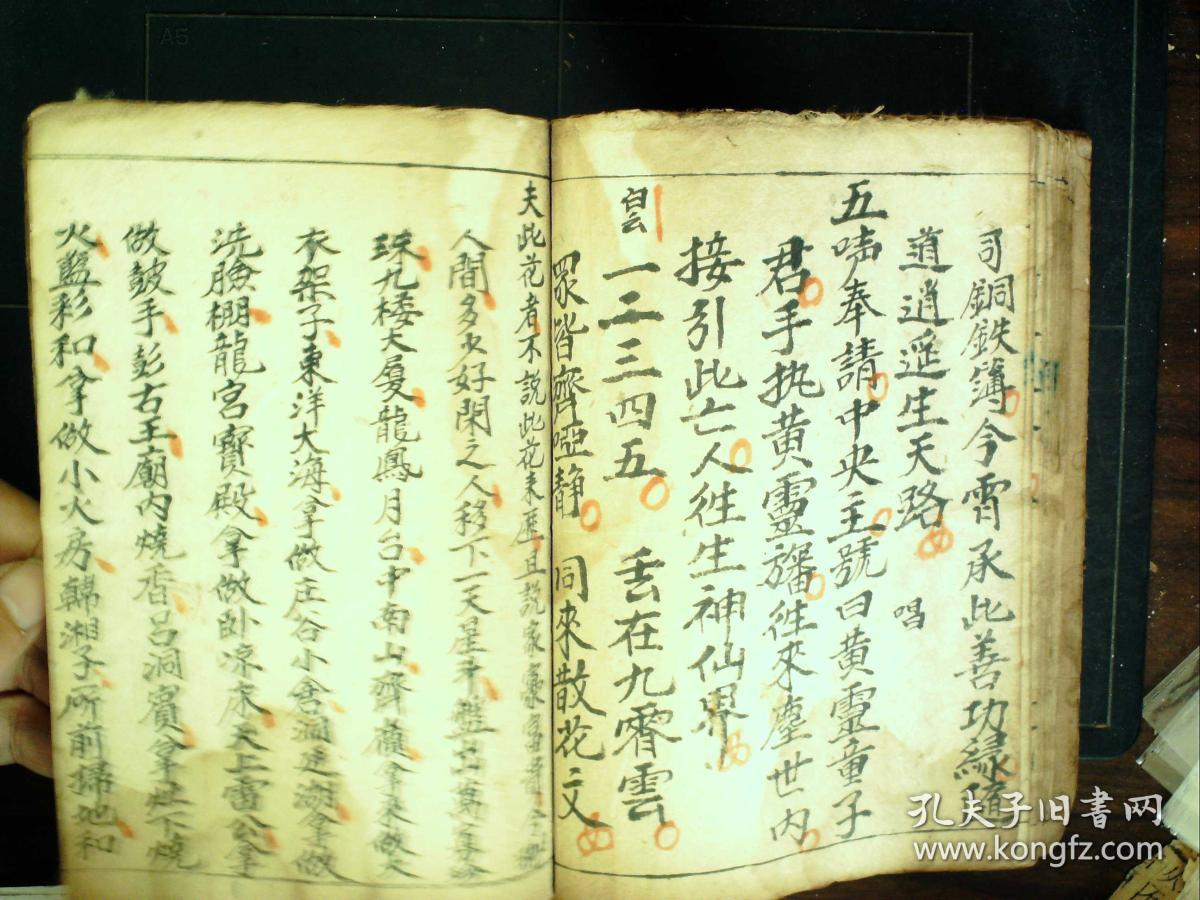 司銅鉄簿今霄承此善功緣隨
道逍遥生天路 唱
五啨奉請中央主號曰黄靈童子
君手执黄靈旛徃來塵世内
接引此亡人徃生神仙界
白云 一二三四五 丢在九霄雲
眾皆齊啞静 同來散花文
夫此花者不説此花来歷且説家
人間多少好閑之人移下一天星斗
珠九楼大厦龍鳳月台中南山齊 拿来做大
衣架子東洋大海拿做庄谷小倉洞廷湖拿做
洗臉棚龍宮寶殿拿做卧凉床天上雷公拿
做皷手彭古王廟内燒香吕洞賓拿灶下燒
火藍彩和拿做小火房韩湘子所前掃地和
A5
孔夫子旧書网
www.kongfz.com